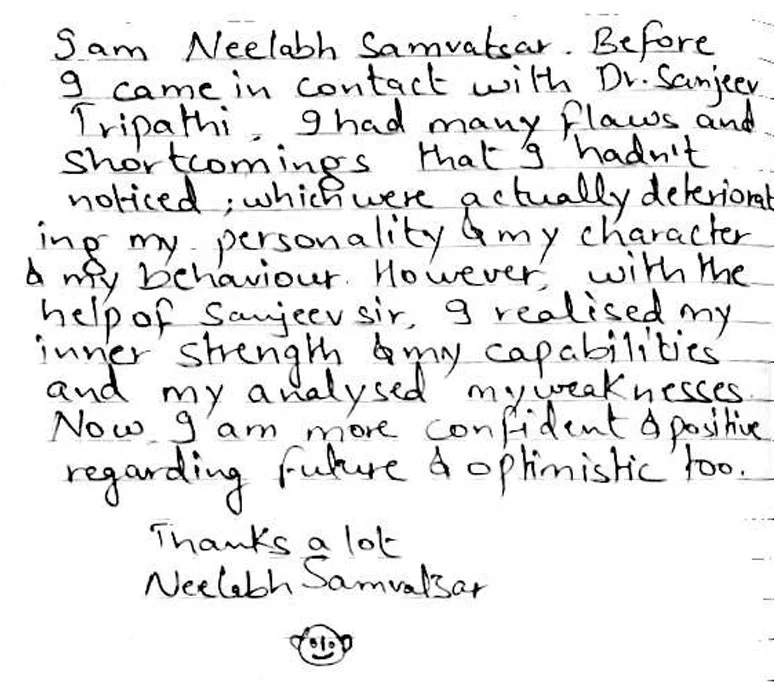 I am Neelabh Samvatsar. Before
I came in contact with Dr. Sanjeev
Tripathi, I had many flaws and
shortcomings that I hadn't
noticed ; which were actually deteriorat
ing my personality & my character
& my behaviour. However, with the
help of Sanjeev sir, I realised my
inner strength & my capabilities
and my analysed my weaknesses.
Now I am more confident & positive
regarding future & optimistic too.
Thanks a lot
Neelabh Samvatsar